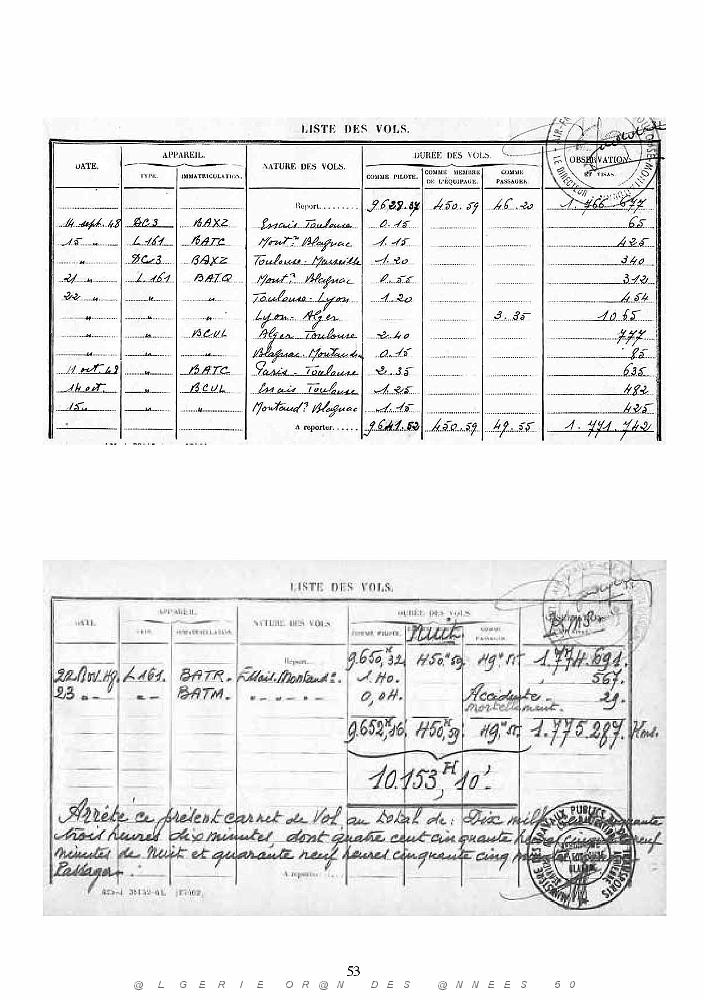 LISTE DES VOLS.
DATE. APPAREIL. NATURE DES VOLS. DURÉE DES VOLS. OBSERVATION.
TYPE. IMMATRICULATION. COMME PILOTE. COMME MEMBRE DE L'ÉQUIPAGE. COMME PASSAGER. ET VISAS.
Report.......... 9628.37 450.59 46.20 1.766.677
14 sept. 48 DC3 BAXZ Essais Toulouse 0.15 65
15 " L 161 BATC Mont.n Blagnac 1.15 425
" DC3 BAXZ Toulouse - Marseille 1.20 340
21 " L 161 BATQ Mont.n Blagnac 0.55 312
22 " " " Toulouse - Lyon 1.20 454
" " " Lyon - Alger 3.35 1065
" " BCUL Alger Toulouse 2.40 777
" " " Blagnac - Montaudn 0.15 85
11 oct. 48 " BATC Paris - Toulouse 2.35 635
14 oct. " BCUL Essais Toulouse 1.25 482
15 " " " Montaudn Blagnac 1.15 425
A reporter...... 9641.52 450.59 49.55 1.771.742
LISTE DES VOLS.
DATE. APPAREIL. NATURE DES VOLS DURÉE DES VOLS
TYPE. IMMATRICULATION. COMME PILOTE. Nuit COMME PASSAGER.
Report... 9.650,H32 450.H59 49.H55 1.774.691.
22 Nov. 49. L 161. BATR. Essais. Montaudn. 1.40. 567.
23 " " BATM. " " " 0,04. Accidenté 29.
mortellement.
9.652,H16 450,H59 49.H55 1.775.287 Kms.
10.153,H 10'
Arrêté ce présent carnet de Vol, au total de : Dix mille cent cinquante
trois heures dix minutes, dont quatre cent cinquante heures cinquante neuf
minutes de Nuit et quarante neuf heures cinquante cinq minutes
Passager.
A reporter
53
@ L G E R I E O R @ N D E S @ N N E E S 5 0